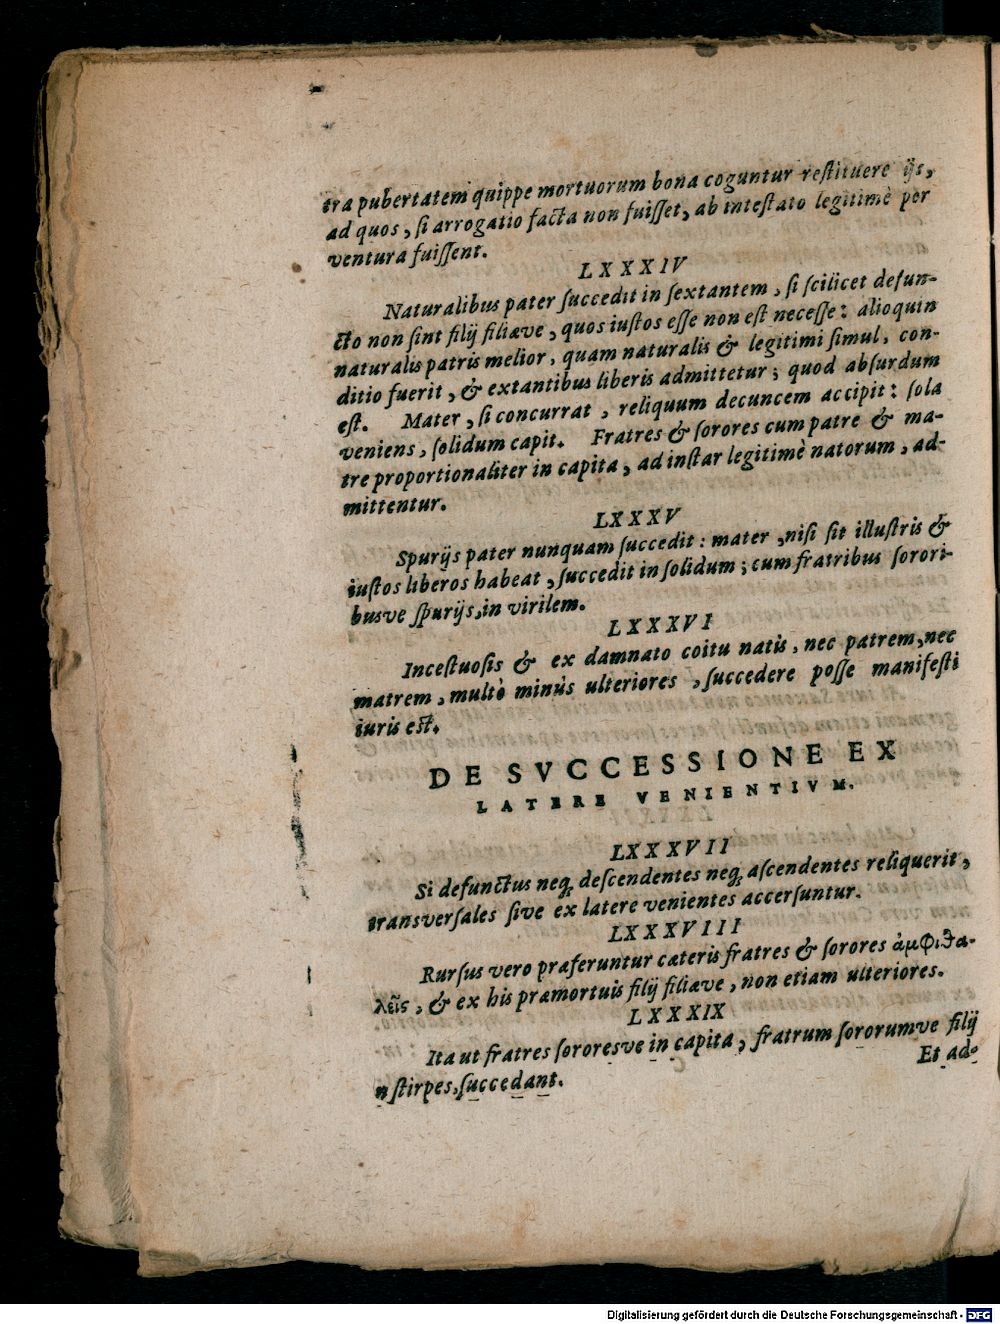 tra pubertatem quippe mortuorum bona coguntur restituere ijs,
ad quos, si arrogatio facta non fuisset, ab intestato legitimè per
ventura fuissent.
LXXXIV
Naturalibus pater succedit in sextantem, si scilicet defun-
cto non sint filij filiæve, quos iustos esse non est necesse: alioquin
naturalis patris melior, quam naturalis & legitimi simul, con-
ditio fuerit, & extantibus liberis admittetur; quod absurdum
est. Mater, si concurrat, reliquum decuncem accipit: sola
veniens, solidum capit. Fratres & sorores cum patre & ma-
tre proportionaliter in capita, ad instar legitimè natorum, ad-
mittentur.
LXXXV
Spurijs pater nunquam succedit: mater, nisi sit illustris &
iustos liberos habeat, succedit in solidum; cum fratribus sorori-
busve spurijs, in virilem.
LXXXVI
Incestuosis & ex damnato coitu natis, nec patrem, nec
matrem, multò minùs ulteriores, succedere posse manifesti
iuris est.
DE SVCCESSIONE EX
LATERE VENIENTIVM.
LXXXVII
Si defunctus neq; descendentes neq; ascendentes reliquerit,
transversales sive ex latere venientes accersuntur.
LXXXVIII
Rursus vero præferuntur cæteris fratres & sorores ἀμφιθα-
λεῖς, & ex his præmortuis filij filiæve, non etiam ulteriores.
LXXXIX
Ita ut fratres sororesve in capita, fratrum sororumve filij
n stirpes, succedant.
Et ad-
Digitalisierung gefördert durch die Deutsche Forschungsgemeinschaft - DFG